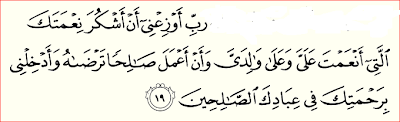 رَبِّ أَوْزِعْنِىٓ أَنْ أَشْكُرَ نِعْمَتَكَ
ٱلَّتِىٓ أَنْعَمْتَ عَلَىَّ وَعَلَىٰ وَٰلِدَىَّ وَأَنْ أَعْمَلَ صَٰلِحًا تَرْضَىٰهُ وَأَدْخِلْنِى
بِرَحْمَتِكَ فِى عِبَادِكَ ٱلصَّٰلِحِينَ ١٩